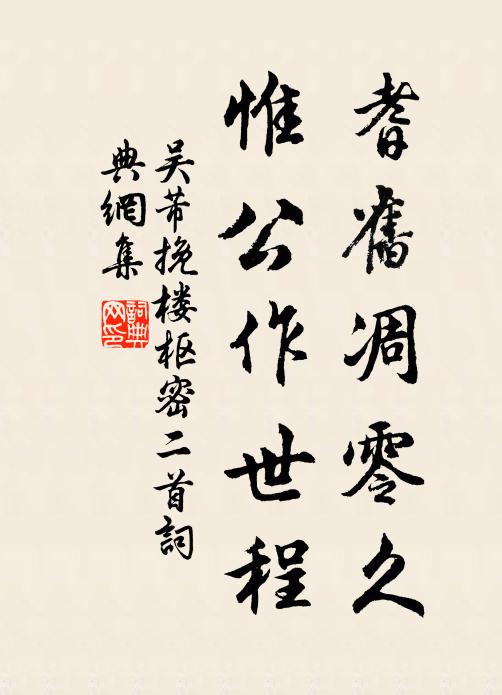 耆舊凋零久
惟公作世程
吴芾挽楼枢密二首詞
典網集
詞典
网印